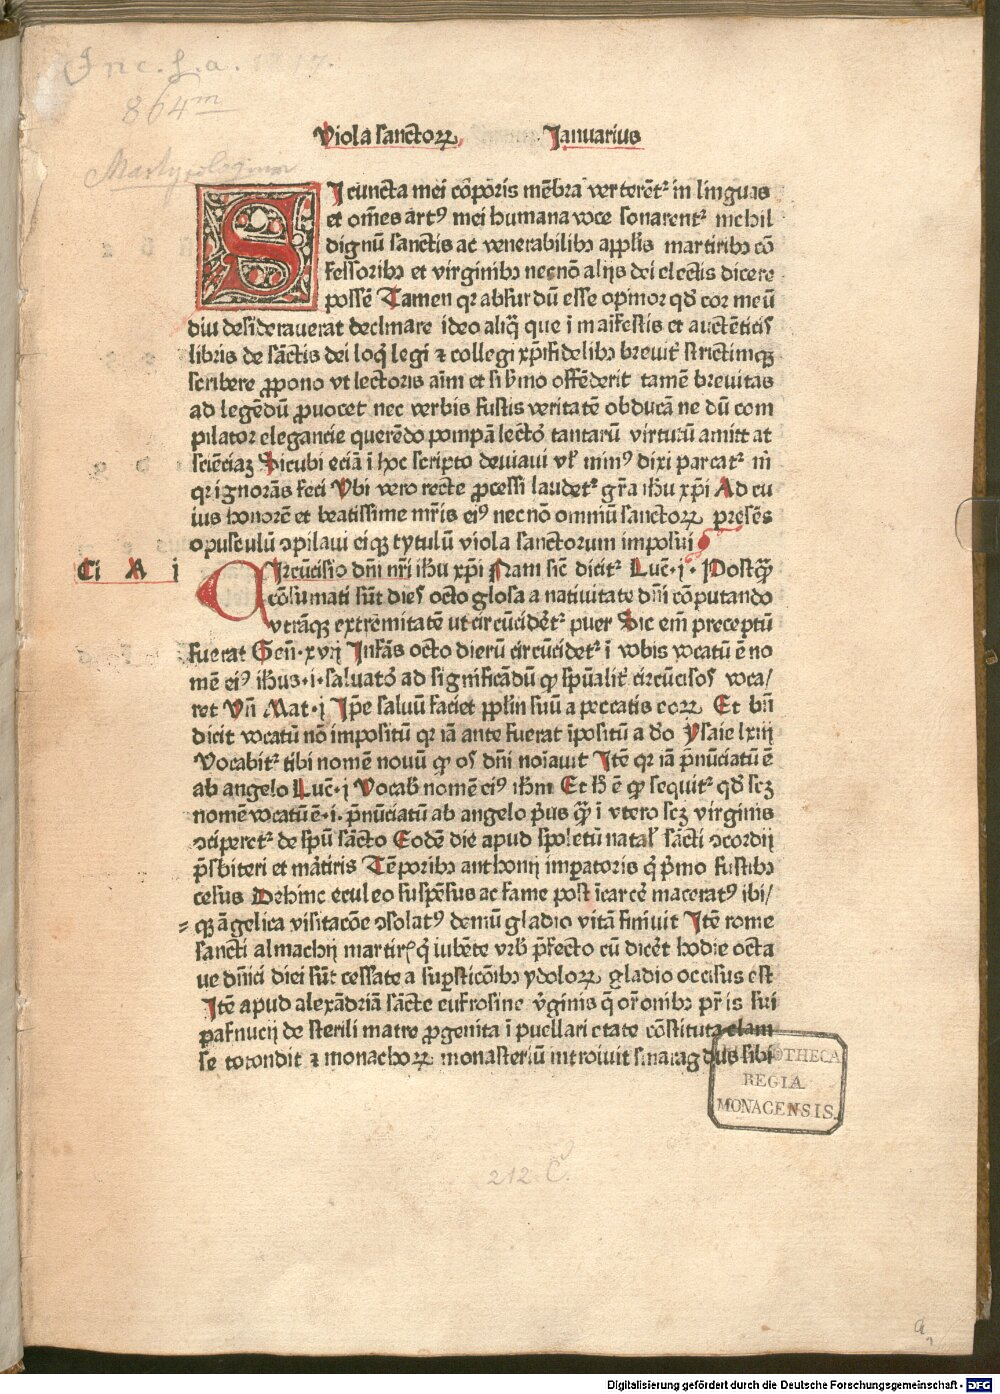 Inc. s. a.
864 m
Viola sanctoꝝ Januarius
Martyrologium
SI cuncta mei cōporis mēbra verterēt᷑ in linguas
et om̄es artꝰ mei humana voce sonarent᷑ nichil
dignū sanctis ac venerabilibꝫ appl̄is martiribꝫ cō
fessoribꝫ et virginibꝫ necnō alijs dei electis dicere
possē Tamen qꝛ absurdū esse opinor qd̄ cor meū
diu desiderauerat declinare ideo aliq̄ que ī maīfestis et auctēticis
libris de sāctis dei loq̄ legi ⁊ collegi xp̄ifidelibꝫ breuit᷑ strictimqꝫ
scribere ꝓpono vt lectoris aīm et si v̓mo offēderit tamē breuitas
ad legēdū ꝓuocet nec verbis fustis veritatē obducā ne dū com
pilator elegancie querēdo pompā lecto᷑ tantarū virtutū amittat
sciēciaꝫ Sicubi eciā ī hoc scripto deuiaui vl̓ minꝰ dixi parcat᷑ m̄
qꝛ ignorās feci Vbi vero recte ꝓcessi laudet᷑ gr̄a ih̄u xp̄i Ad cu
ius honorē et beatissime mr̄is eiꝰ necnō omniū sanctoꝝ presēs
opusculū ꝯpilaui eiqꝫ tytulū viola sanctorum imposui
Ci A j
CIrcūcisio dn̄i nr̄i ih̄u xp̄i Nam sic̄ dicit᷑ Luc̄·ij· Postqꝫ̄
cōsumati sūt dies octo glosa a natiuitate dn̄i cōputando
vtrāqꝫ extremitatē ut circūcidēt᷑ puer Sic em̄ preceptū
fuerat Gen̄·xvij Infās octo dierū circūcidet᷑ ī vobis vocatū ē no
mē eiꝰ ih̄us·i·saluato᷑ ad significādū ꝙ sp̄ualit᷑ circūcisos voca/
ret Vn̄ Mat·j Ip̄e saluū faciet ppl̄m suū a peccatis eoꝝ Et bn̄
dicit vocatū nō impositū qꝛ iā ante fuerat īpositū a dō ysaie lxiij
Vocabit᷑ tibi nomē nouū ꝙ os dn̄i noīauit Itē qꝛ iā p̄nūciatū ē
ab angelo Luc̄·j Vocab̄ nomē eiꝰ ih̄m Et h̄ ē ꝙ sequit᷑ qd̄ scꝫ
nomē vocatū ē·i·p̄nūciatū ab angelo p̓us qꝫ̄ ī vtero scꝫ virginis
ꝯciperet᷑ de sp̄u sācto Eodē die apud spoletū natal̓ sācti ꝯcordij
p̄sbiteri et mārtiris Tēporibꝫ anthonij imꝑatoris q̄ p̓mo fustibꝫ
cesus Dehinc eculeo suspēsus ac fame post īcarcē maceratꝰ ibi/
qꝫ āgelica visitacōe ꝯsolatꝰ demū gladio vitā finiuit Itē rome
sancti almachij martirꝭ q̄ iubēte vrb̓ p̄fecto cū dicēt hodie octa
ue dn̄ici diei sūt cessate a suꝑsticōibꝫ ydoloꝝ gladio occisus est
Itē apud alexādriā sācte eufrosine v̓ginis q̄ or̄onibꝫ pr̄is sui
pafnucij de sterili matre ꝓgenita ī puellari etate cōstituta clam
se totondit ⁊ monachoꝝ monasteriū introiuit smaragdus sibi
BIBLIOTHECA
REGIA
MONACENSIS.
212. C
a
Digitalisierung gefördert durch die Deutsche Forschungsgemeinschaft - DFG